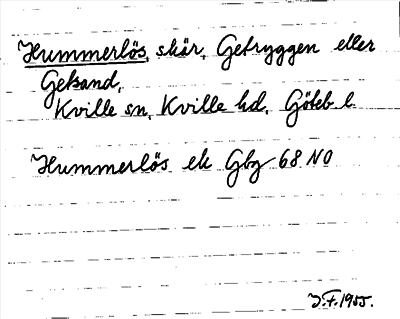 Hummerlös, skär, Getryggen eller
Getsand,
Kville sn, Kville hd, Göteb l.
Hummerlös ek Gbg 68 NO
J.F. 1955.